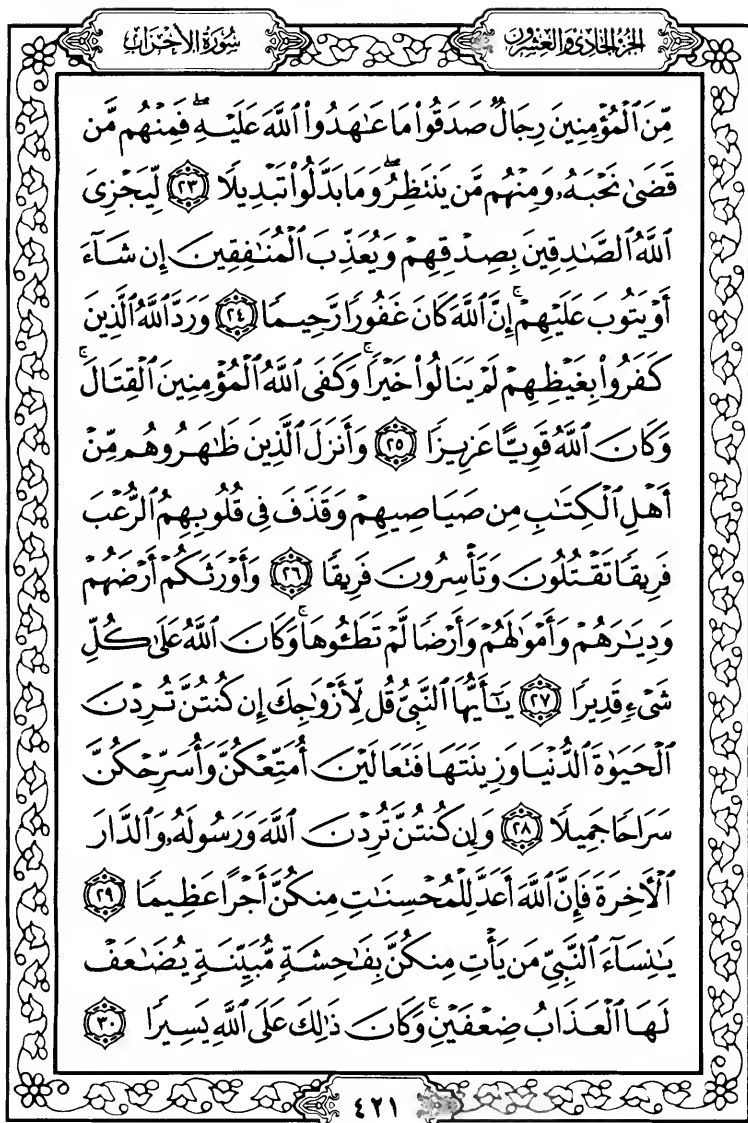 الجزء الحادي والعشرون
سورة الأحزاب
مِّنَ ٱلْمُؤْمِنِينَ رِجَالٌ صَدَقُوا۟ مَا عَـٰهَدُوا۟ ٱللَّهَ عَلَيْهِ ۖ فَمِنْهُم مَّن
قَضَىٰ نَحْبَهُۥ وَمِنْهُم مَّن يَنتَظِرُ ۖ وَمَا بَدَّلُوا۟ تَبْدِيلًا ٢٣ لِّيَجْزِىَ
ٱللَّهُ ٱلصَّـٰدِقِينَ بِصِدْقِهِمْ وَيُعَذِّبَ ٱلْمُنَـٰفِقِينَ إِن شَآءَ
أَوْ يَتُوبَ عَلَيْهِمْ ۚ إِنَّ ٱللَّهَ كَانَ غَفُورًا رَّحِيمًا ٢٤ وَرَدَّ ٱللَّهُ ٱلَّذِينَ
كَفَرُوا۟ بِغَيْظِهِمْ لَمْ يَنَالُوا۟ خَيْرًا ۚ وَكَفَى ٱللَّهُ ٱلْمُؤْمِنِينَ ٱلْقِتَالَ ۚ
وَكَانَ ٱللَّهُ قَوِيًّا عَزِيزًا ٢٥ وَأَنزَلَ ٱلَّذِينَ ظَـٰهَرُوهُم مِّنْ
أَهْلِ ٱلْكِتَـٰبِ مِن صَيَاصِيهِمْ وَقَذَفَ فِى قُلُوبِهِمُ ٱلرُّعْبَ
فَرِيقًا تَقْتُلُونَ وَتَأْسِرُونَ فَرِيقًا ٢٦ وَأَوْرَثَكُمْ أَرْضَهُمْ
وَدِيَـٰرَهُمْ وَأَمْوَٰلَهُمْ وَأَرْضًا لَّمْ تَطَـُٔوهَا ۚ وَكَانَ ٱللَّهُ عَلَىٰ كُلِّ
شَىْءٍ قَدِيرًا ٢٧ يَـٰٓأَيُّهَا ٱلنَّبِىُّ قُل لِّأَزْوَٰجِكَ إِن كُنتُنَّ تُرِدْنَ
ٱلْحَيَوٰةَ ٱلدُّنْيَا وَزِينَتَهَا فَتَعَالَيْنَ أُمَتِّعْكُنَّ وَأُسَرِّحْكُنَّ
سَرَاحًا جَمِيلًا ٢٨ وَإِن كُنتُنَّ تُرِدْنَ ٱللَّهَ وَرَسُولَهُۥ وَٱلدَّارَ
ٱلْـَٔاخِرَةَ فَإِنَّ ٱللَّهَ أَعَدَّ لِلْمُحْسِنَـٰتِ مِنكُنَّ أَجْرًا عَظِيمًا ٢٩
يَـٰنِسَآءَ ٱلنَّبِىِّ مَن يَأْتِ مِنكُنَّ بِفَـٰحِشَةٍ مُّبَيِّنَةٍ يُضَـٰعَفْ
لَهَا ٱلْعَذَابُ ضِعْفَيْنِ ۚ وَكَانَ ذَٰلِكَ عَلَى ٱللَّهِ يَسِيرًا ٣٠
٤٢١